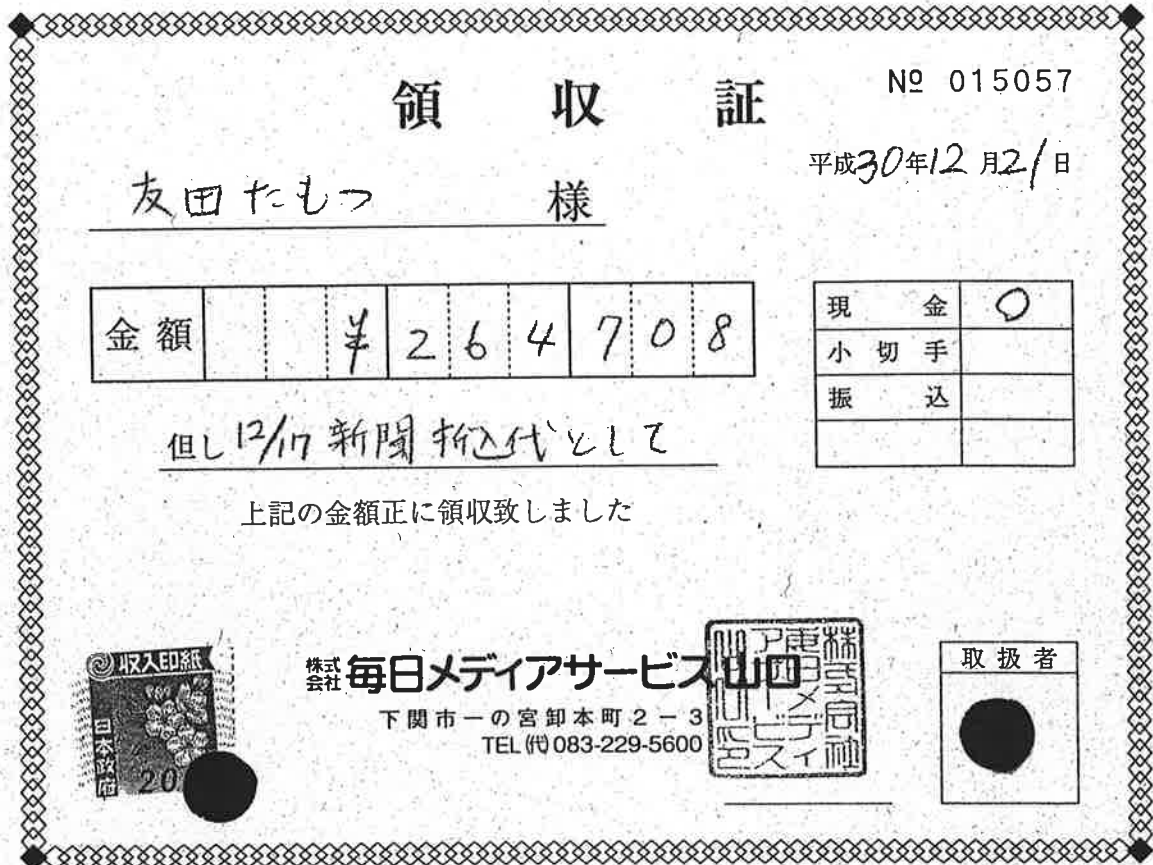 領収証
№ 015057
平成30年12月21日
友田たもつ 様
金額 ¥264708
現金 ○
小切手
振込
但し 12/17 新聞折込代として
上記の金額正に領収致しました
収入印紙
日本政府
20
株式会社 毎日メディアサービス山口
下関市一の宮卸本町2-3
TEL(代)083-229-5600
取扱者